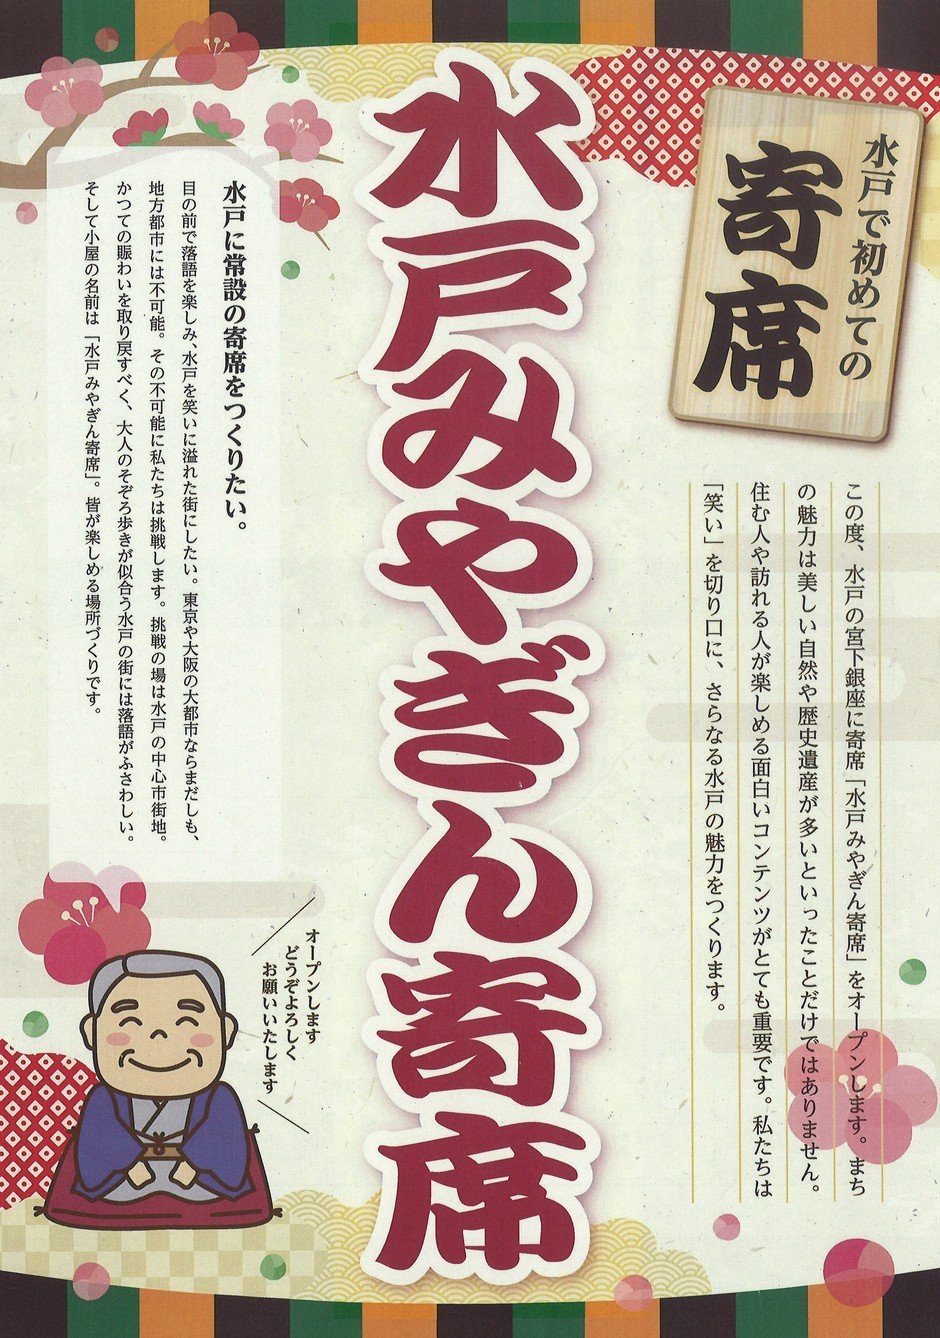 水戸で初めての
寄席
この度、水戸の宮下銀座に寄席「水戸みやぎん寄席」をオープンします。まち
の魅力は美しい自然や歴史遺産が多いといったことだけではありません。
住む人や訪れる人が楽しめる面白いコンテンツがとても重要です。私たちは
「笑い」を切り口に、さらなる水戸の魅力をつくります。
水戸みやぎん寄席
水戸に常設の寄席をつくりたい。
目の前で落語を楽しみ、水戸を笑いに溢れた街にしたい。東京や大阪の大都市ならまだしも、
地方都市には不可能。その不可能に私たちは挑戦します。挑戦の場は水戸の中心市街地。
かつての賑わいを取り戻すべく、大人のそぞろ歩きが似合う水戸の街には落語がふさわしい。
そして小屋の名前は「水戸みやぎん寄席」。皆が楽しめる場所づくりです。
オープンします
どうぞよろしく
お願いいたします